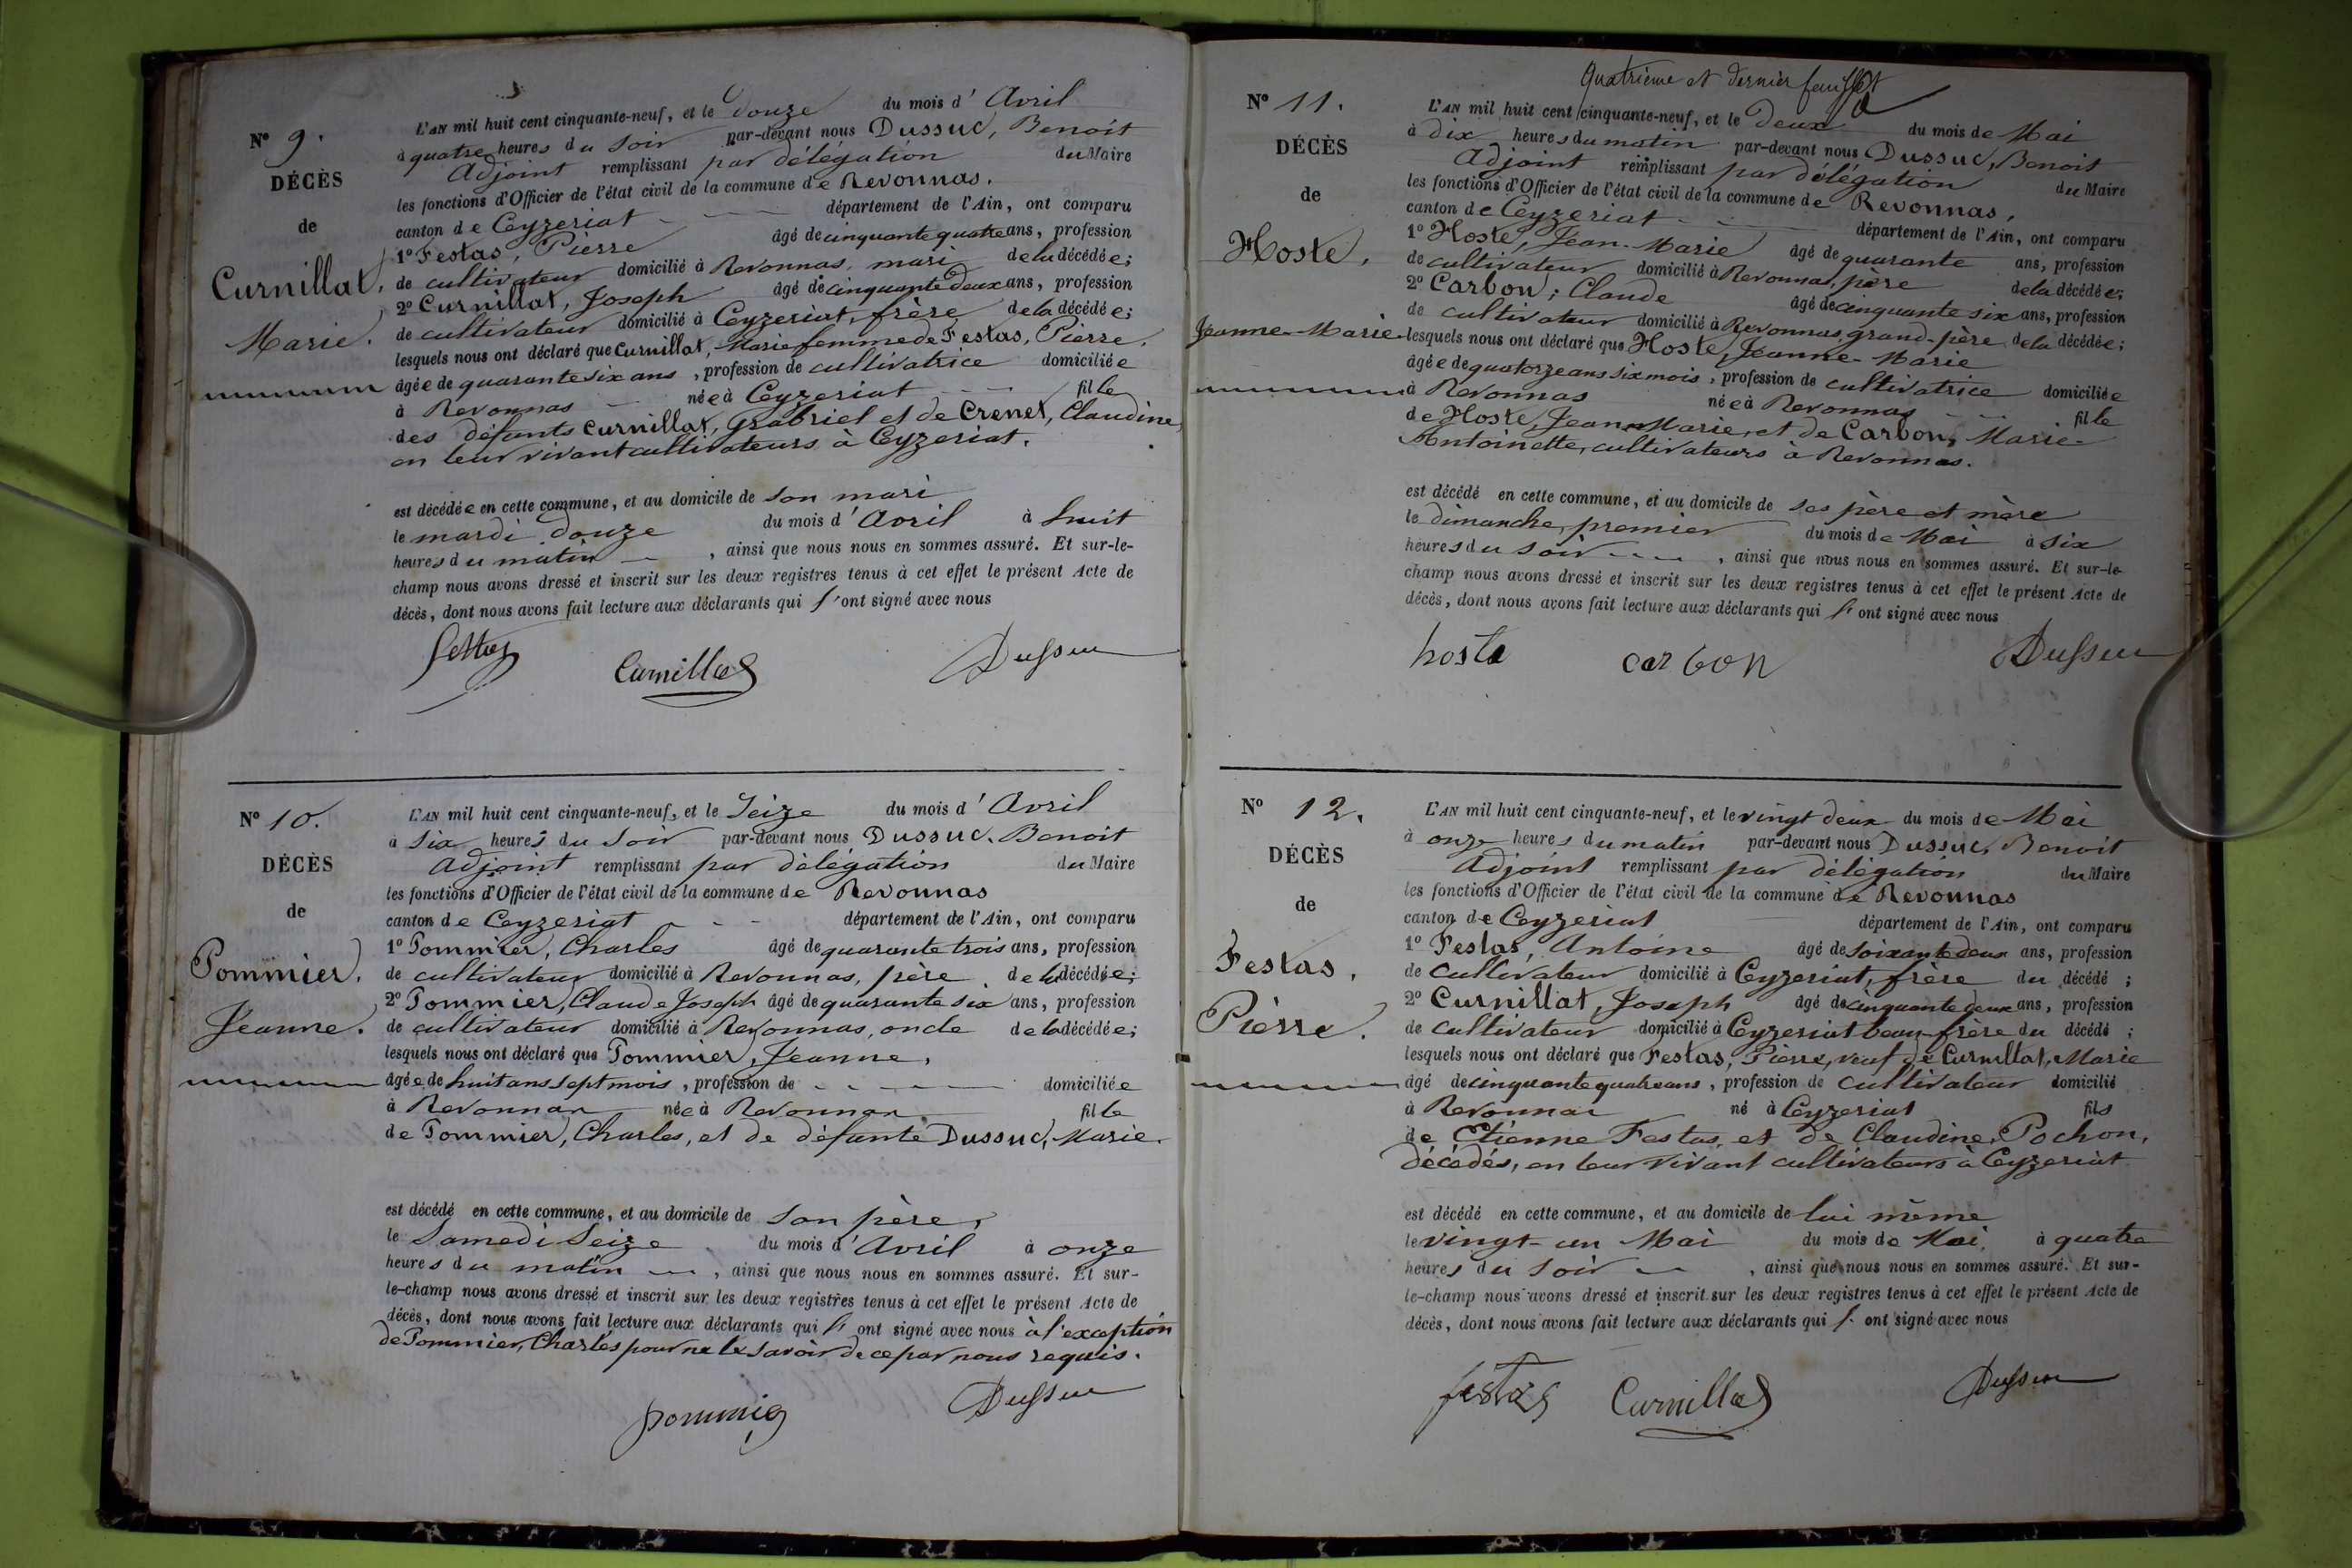 N° 9.
DÉCÈS
de
Curnillat,
Marie.
L'AN mil huit cent cinquante-neuf, et le douze du mois d'Avril
à quatre heures du soir par-devant nous Dussuc, Benoit
Adjoint remplissant par délégation du Maire
les fonctions d'Officier de l'état civil de la commune de Revonnas.
canton de Ceyzeriat département de l'Ain, ont comparu
1° Festas, Pierre âgé de cinquante quatre ans, profession
de cultivateur domicilié à Revonnas, mari de la décédée;
2° Curnillat, Joseph âgé de cinquante deux ans, profession
de cultivateur domicilié à Ceyzeriat, frère de la décédée;
lesquels nous ont déclaré que Curnillat, Marie femme de Festas, Pierre.
âgée de quarante six ans, profession de cultivatrice domiciliée
à Revonnas née à Ceyzeriat fille
des défunts Curnillat, Grabriel et de Crenet, Claudine
en leur vivant cultivateurs à Ceyzeriat.
est décédée en cette commune, et au domicile de son mari
le mardi douze du mois d'Avril à huit
heures du matin, ainsi que nous nous en sommes assuré. Et sur-le-
champ nous avons dressé et inscrit sur les deux registres tenus à cet effet le présent Acte de
décès, dont nous avons fait lecture aux déclarants qui l'ont signé avec nous
festas Curnillat Dussuc
N° 10.
DÉCÈS
de
Pommier.
Jeanne.
L'AN mil huit cent cinquante-neuf, et le Seize du mois d'Avril
à six heures du soir par-devant nous Dussuc, Benoit
Adjoint remplissant par délégation du Maire
les fonctions d'Officier de l'état civil de la commune de Revonnas
canton de Ceyzeriat département de l'Ain, ont comparu
1° Pommier, Charles âgé de quarante trois ans, profession
de cultivateur domicilié à Revonnas, père de la décédée;
2° Pommier, Claude Joseph âgé de quarante six ans, profession
de cultivateur domicilié à Revonnas, oncle de la décédée;
lesquels nous ont déclaré que Pommier, Jeanne,
âgée de huit ans sept mois, profession de domiciliée
à Revonnas née à Revonnas fille
de Pommier, Charles, et de défunte Dussuc, Marie.
est décédé en cette commune, et au domicile de son père,
le Samedi Seize du mois d'Avril à onze
heures du matin, ainsi que nous nous en sommes assuré. Et sur-
le-champ nous avons dressé et inscrit sur les deux registres tenus à cet effet le présent Acte de
décès, dont nous avons fait lecture aux déclarants qui l'ont signé avec nous à l'exception
de Pommier, Charles pour ne le savoir de ce par nous requis.
pommier Dussuc
Quatrième et dernier feuillet
N° 11.
DÉCÈS
de
Hoste,
Jeanne-Marie
L'AN mil huit cent cinquante-neuf, et le Deux du mois de Mai
à dix heures du matin par-devant nous Dussuc, Benoit
Adjoint remplissant par délégation du Maire
les fonctions d'Officier de l'état civil de la commune de Revonnas,
canton de Ceyzeriat département de l'Ain, ont comparu
1° Hoste, Jean-Marie âgé de quarante ans, profession
de cultivateur domicilié à Revonnas, père de la décédée;
2° Carbon, Claude âgé de cinquante six ans, profession
de cultivateur domicilié à Revonnas grand-père de la décédée;
lesquels nous ont déclaré que Hoste, Jeanne-Marie
âgée de quatorze ans six mois, profession de cultivatrice domiciliée
à Revonnas née à Revonnas fille
de Hoste, Jean-Marie, et de Carbon, Marie-
Antoinette, cultivateurs à Revonnas.
est décédé en cette commune, et au domicile de ses père et mère
le dimanche premier du mois de Mai à six
heures du soir, ainsi que nous nous en sommes assuré. Et sur-le-
champ nous avons dressé et inscrit sur les deux registres tenus à cet effet le présent Acte de
décès, dont nous avons fait lecture aux déclarants qui l'ont signé avec nous
hoste carbon Dussuc
N° 12.
DÉCÈS
de
Festas,
Pierre.
L'AN mil huit cent cinquante-neuf, et le vingt deux du mois de Mai
à onze heures du matin par-devant nous Dussuc, Benoit
Adjoint remplissant par délégation du Maire
les fonctions d'Officier de l'état civil de la commune de Revonnas
canton de Ceyzeriat département de l'Ain, ont comparu
1° Festas, Antoine âgé de soixante deux ans, profession
de cultivateur domicilié à Ceyzeriat, frère du décédé;
2° Curnillat, Joseph âgé de cinquante deux ans, profession
de cultivateur domicilié à Ceyzeriat beau-frère du décédé;
lesquels nous ont déclaré que Festas, Pierre, veuf de Curnillat, Marie
âgé de cinquante quatre ans, profession de cultivateur domicilié
à Revonnas né à Ceyzeriat fils
de Etienne Festas, et de Claudine, Pochon,
décédés, en leur vivant cultivateurs à Ceyzeriat
est décédé en cette commune, et au domicile de lui même
le vingt-un Mai du mois de Mai, à quatre
heures du soir, ainsi que nous nous en sommes assuré. Et sur-
le-champ nous avons dressé et inscrit sur les deux registres tenus à cet effet le présent Acte de
décès, dont nous avons fait lecture aux déclarants qui l'ont signé avec nous
festas Curnillat Dussuc